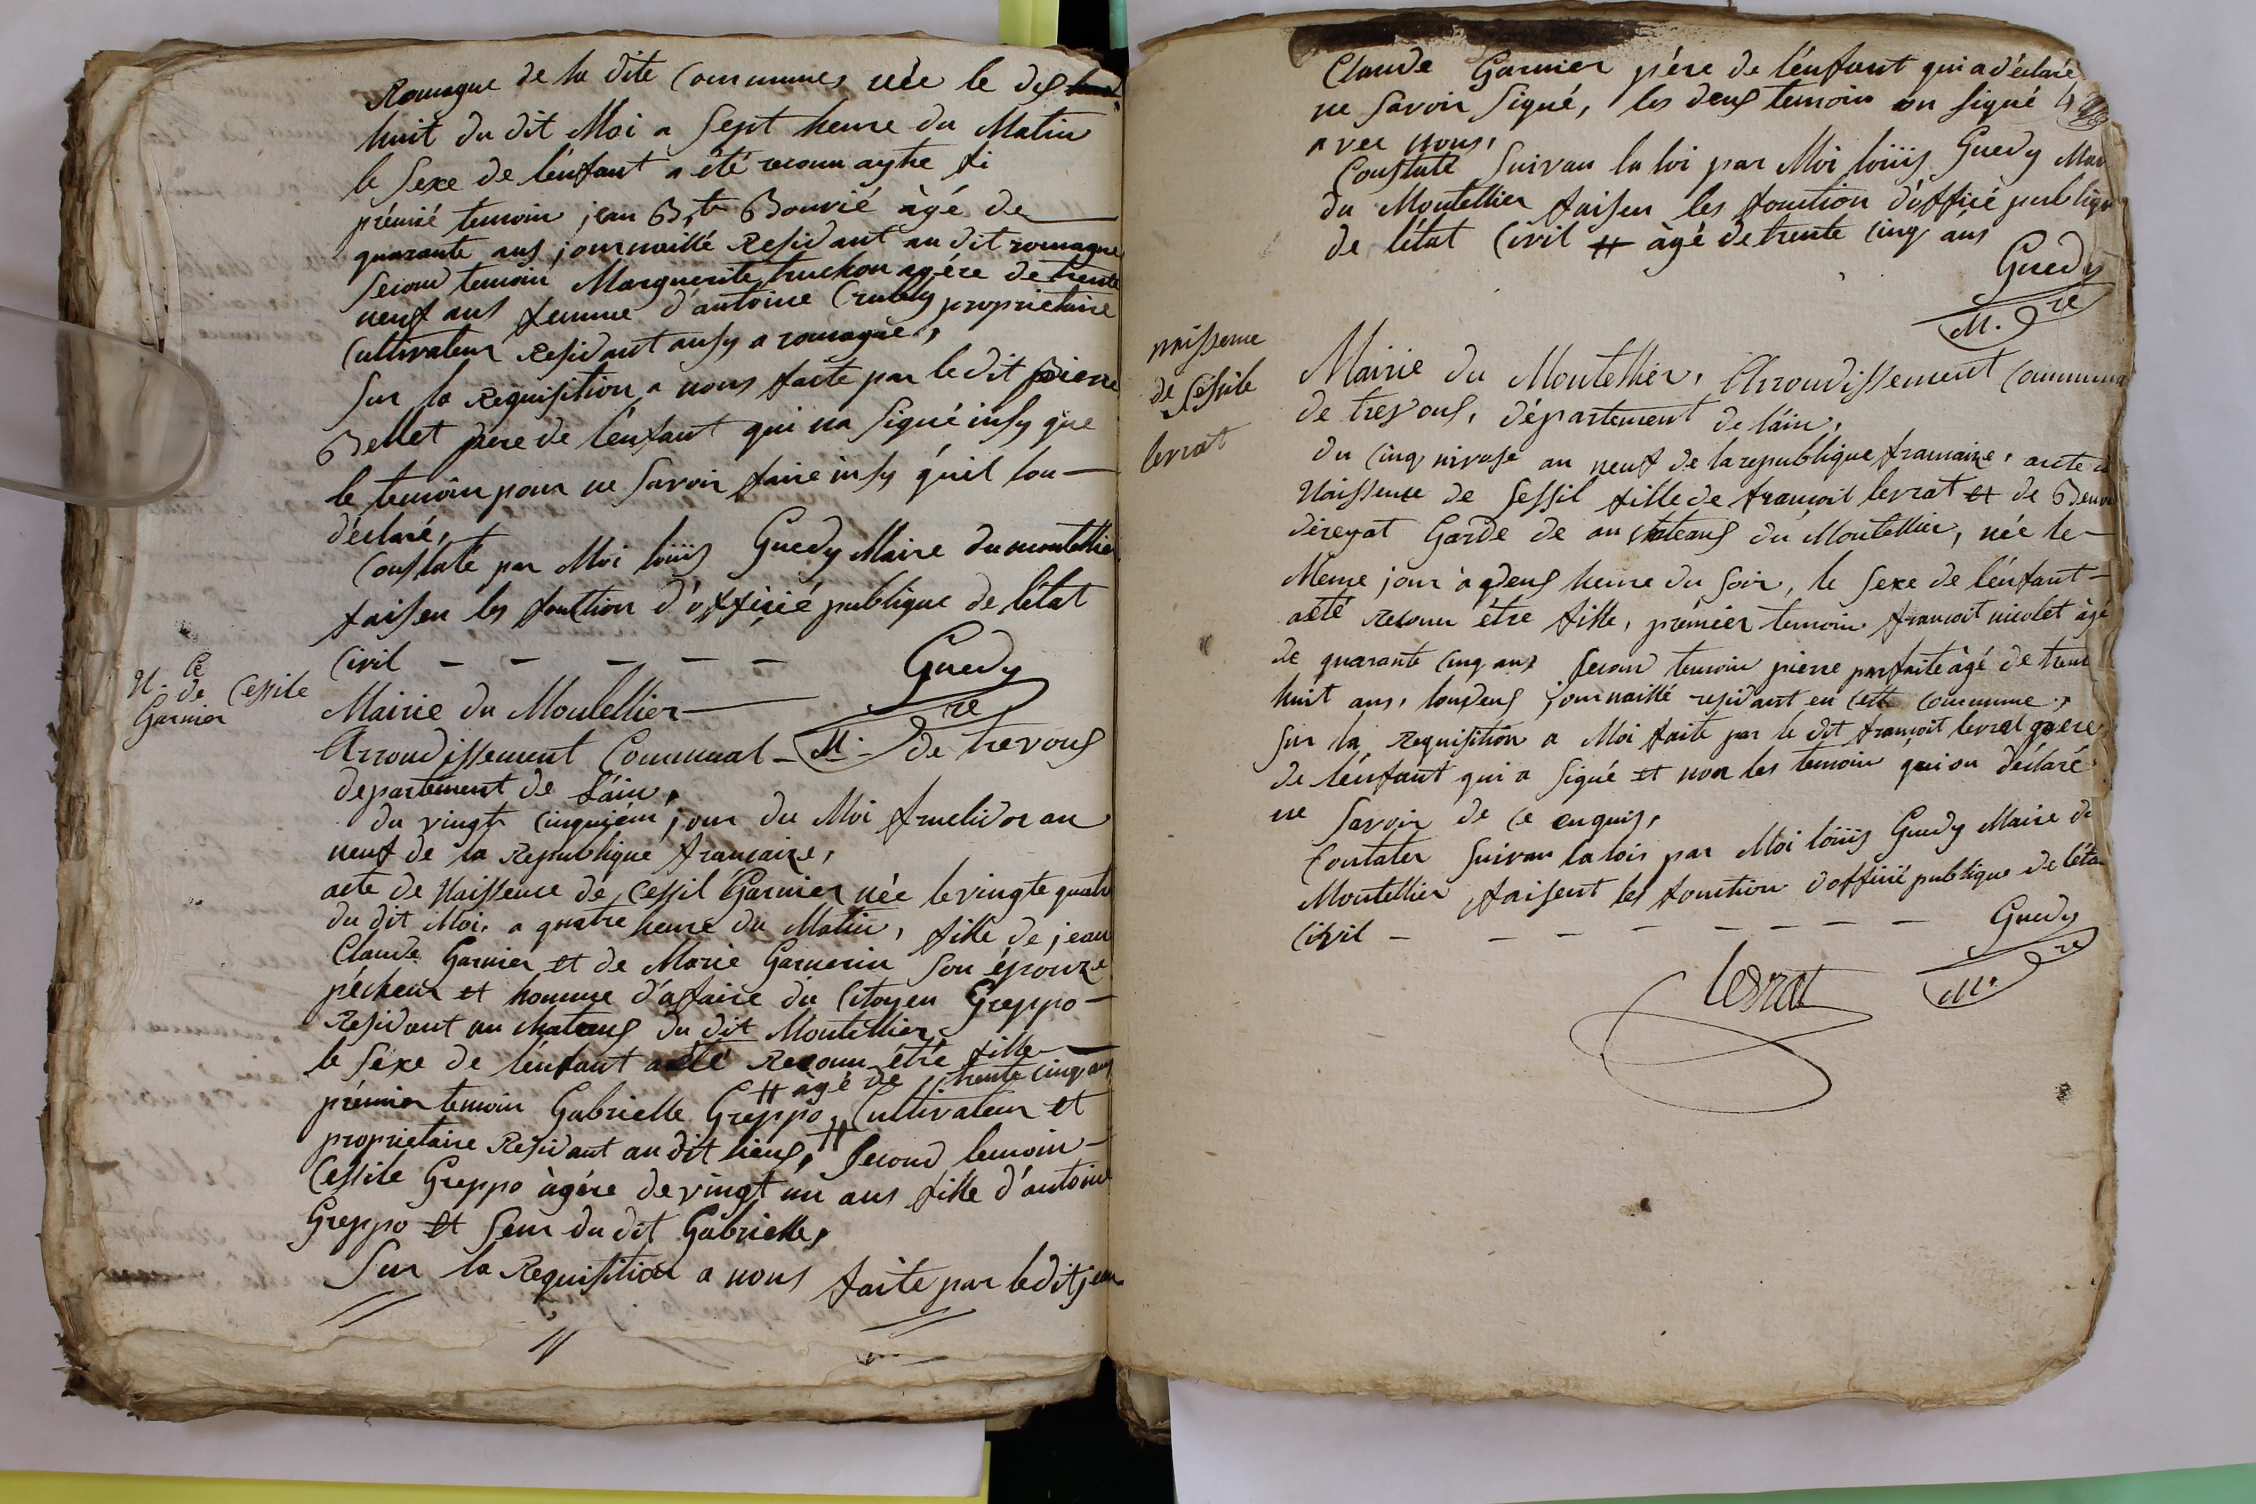 Romagne de la dite Communes née le des
huit du dit Moi a sept heure du Matin
le sexe de l'énfant a été reconn aythe fi
prémié temoin jean B.te Bouvié àgé de
quarante ans journaillé Residant au dit romagne
second temoin Marguerite truchon agére de trente
neuf ans femme d'antoine proprietaire
Cultivateur Residant ausy a romagne,
Sur la Requisition a nous faite par le dit pierre
Bellet pere de l'énfant qui na signé insy que
le temoin pour ne savoir faire insy qu'il lon
déclaré,
Constaté par Moi loüis Guedy Maire du montellier
faisen les fonction d'officié publique de l'état
Civil
Guedy
M. re
N.ce
de Cessile
Garnier
Mairie du Montellier
Arrondissement Communal de trevous
departement de l'ain,
du vingt cinquiém jour du Moi fructidor an
neuf de la Republique francaize,
acte de Naissence de Cessil Garnier née le vingte quatr
du dit Moi, a quatre heure du Matin, fille de jean
Claude Garnier et de Marie Garnerin son épouze
pécheur et homme d'afaire du Citoyen Greppo
Residant au chateaus du dit Montellier,
le sexe de l'énfant a été Reconu étre fille
# agé de trente cinq ans
prémier temoin Gabrielle Greppo, # Cultivateur et
proprietaire Residant au dit lieus, # second temoin
Cessile Greppo àgére de vingt un ans fille d'antoine
Greppo et seur du dit Gabrielle,
Sur la Requisition a nous faite par le dit jean
Claude Garnier pére de l'énfant qui a déclaré
ne savoir signé, les deus temoin on signé
avec nous,
Constaté suivan la loi par Moi loüis Guedy Mai
du Montellier faisen les fonction d'officié publique
de l'état Civil # àgé de trente cinq ans
Guedy
M. re
naissence
de Sessile
levrat
Mairie du Montellier, Arrondissement Communa
de trevous, département de l'áin,
du cinq nivose an neuf de la republique francaize, acte d
Naissence de Sessil fille de francoit levrat et de Benoi
direyat Garde de au chateaus du Montellier, née le
Meme jour à deus heure du soir, le sexe de l'énfant
a été reconu étre fille, prémier temoin francoit nicolet àgé
de quarante cinq ans second temoin pierre parfaite àgé de trent
huit ans, tous deus journaillé residant en cette commune,
sur la Requisition a Moi faite par le dit francoit levrat pere
de l'énfant qui a signé et non les temoin qui on déclaré
ne savoir de ce enquis,
Contater suivan la lois par Moi loüis Guedy Maire du
Montellier, faisent les fonction d'officié publique de l'éta
Civil
Guedy
M. re
levrat